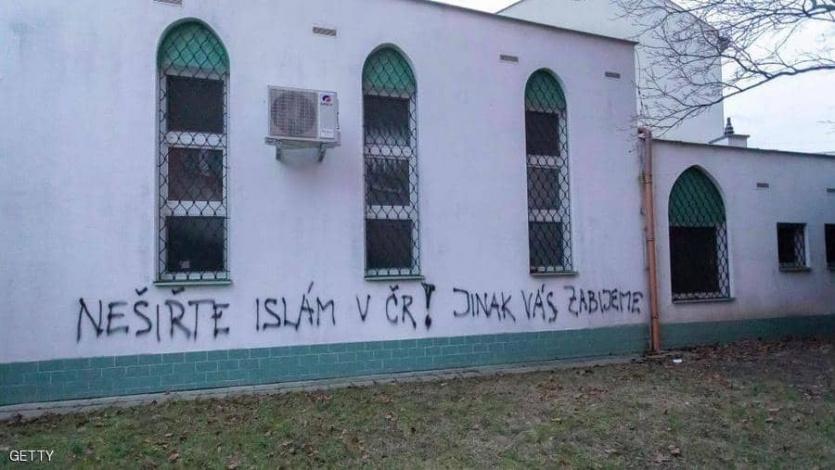 NEŠIŘTE ISLÁM V ČR! JINAK VÁS ZABIJEME
GETTY